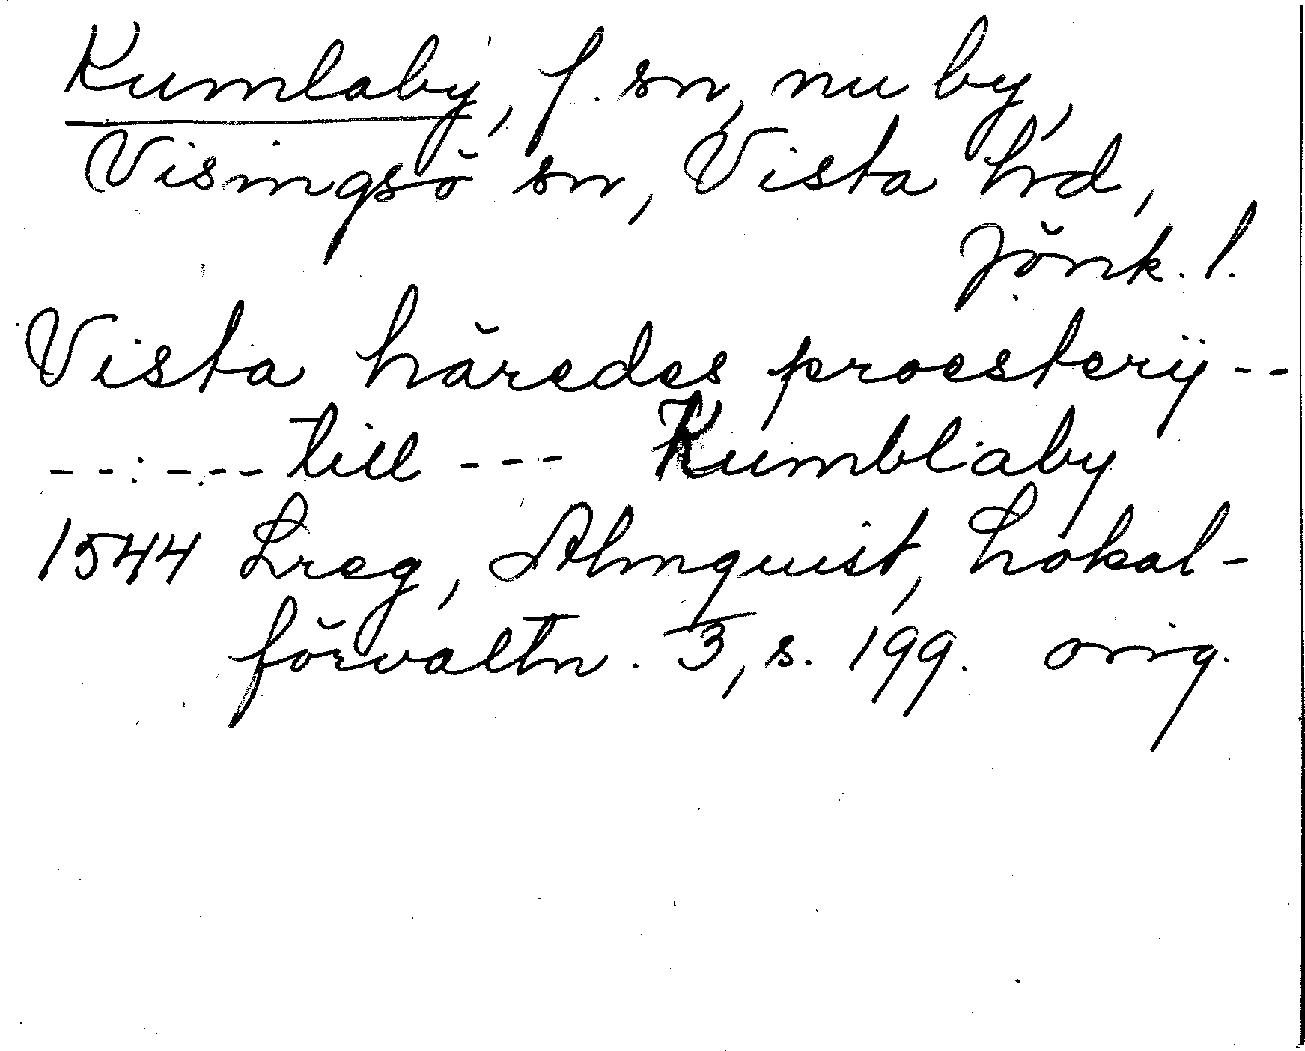 Kumlaby, f. sn, nu by,
Visingsö sn, Vista hd,
Jönk. l.
Vista häredes proesterij --
------ till --- Kumblaby
1544 Lreg, Almquist, Lokal-
förvaltn. 3, s. 199. orig.